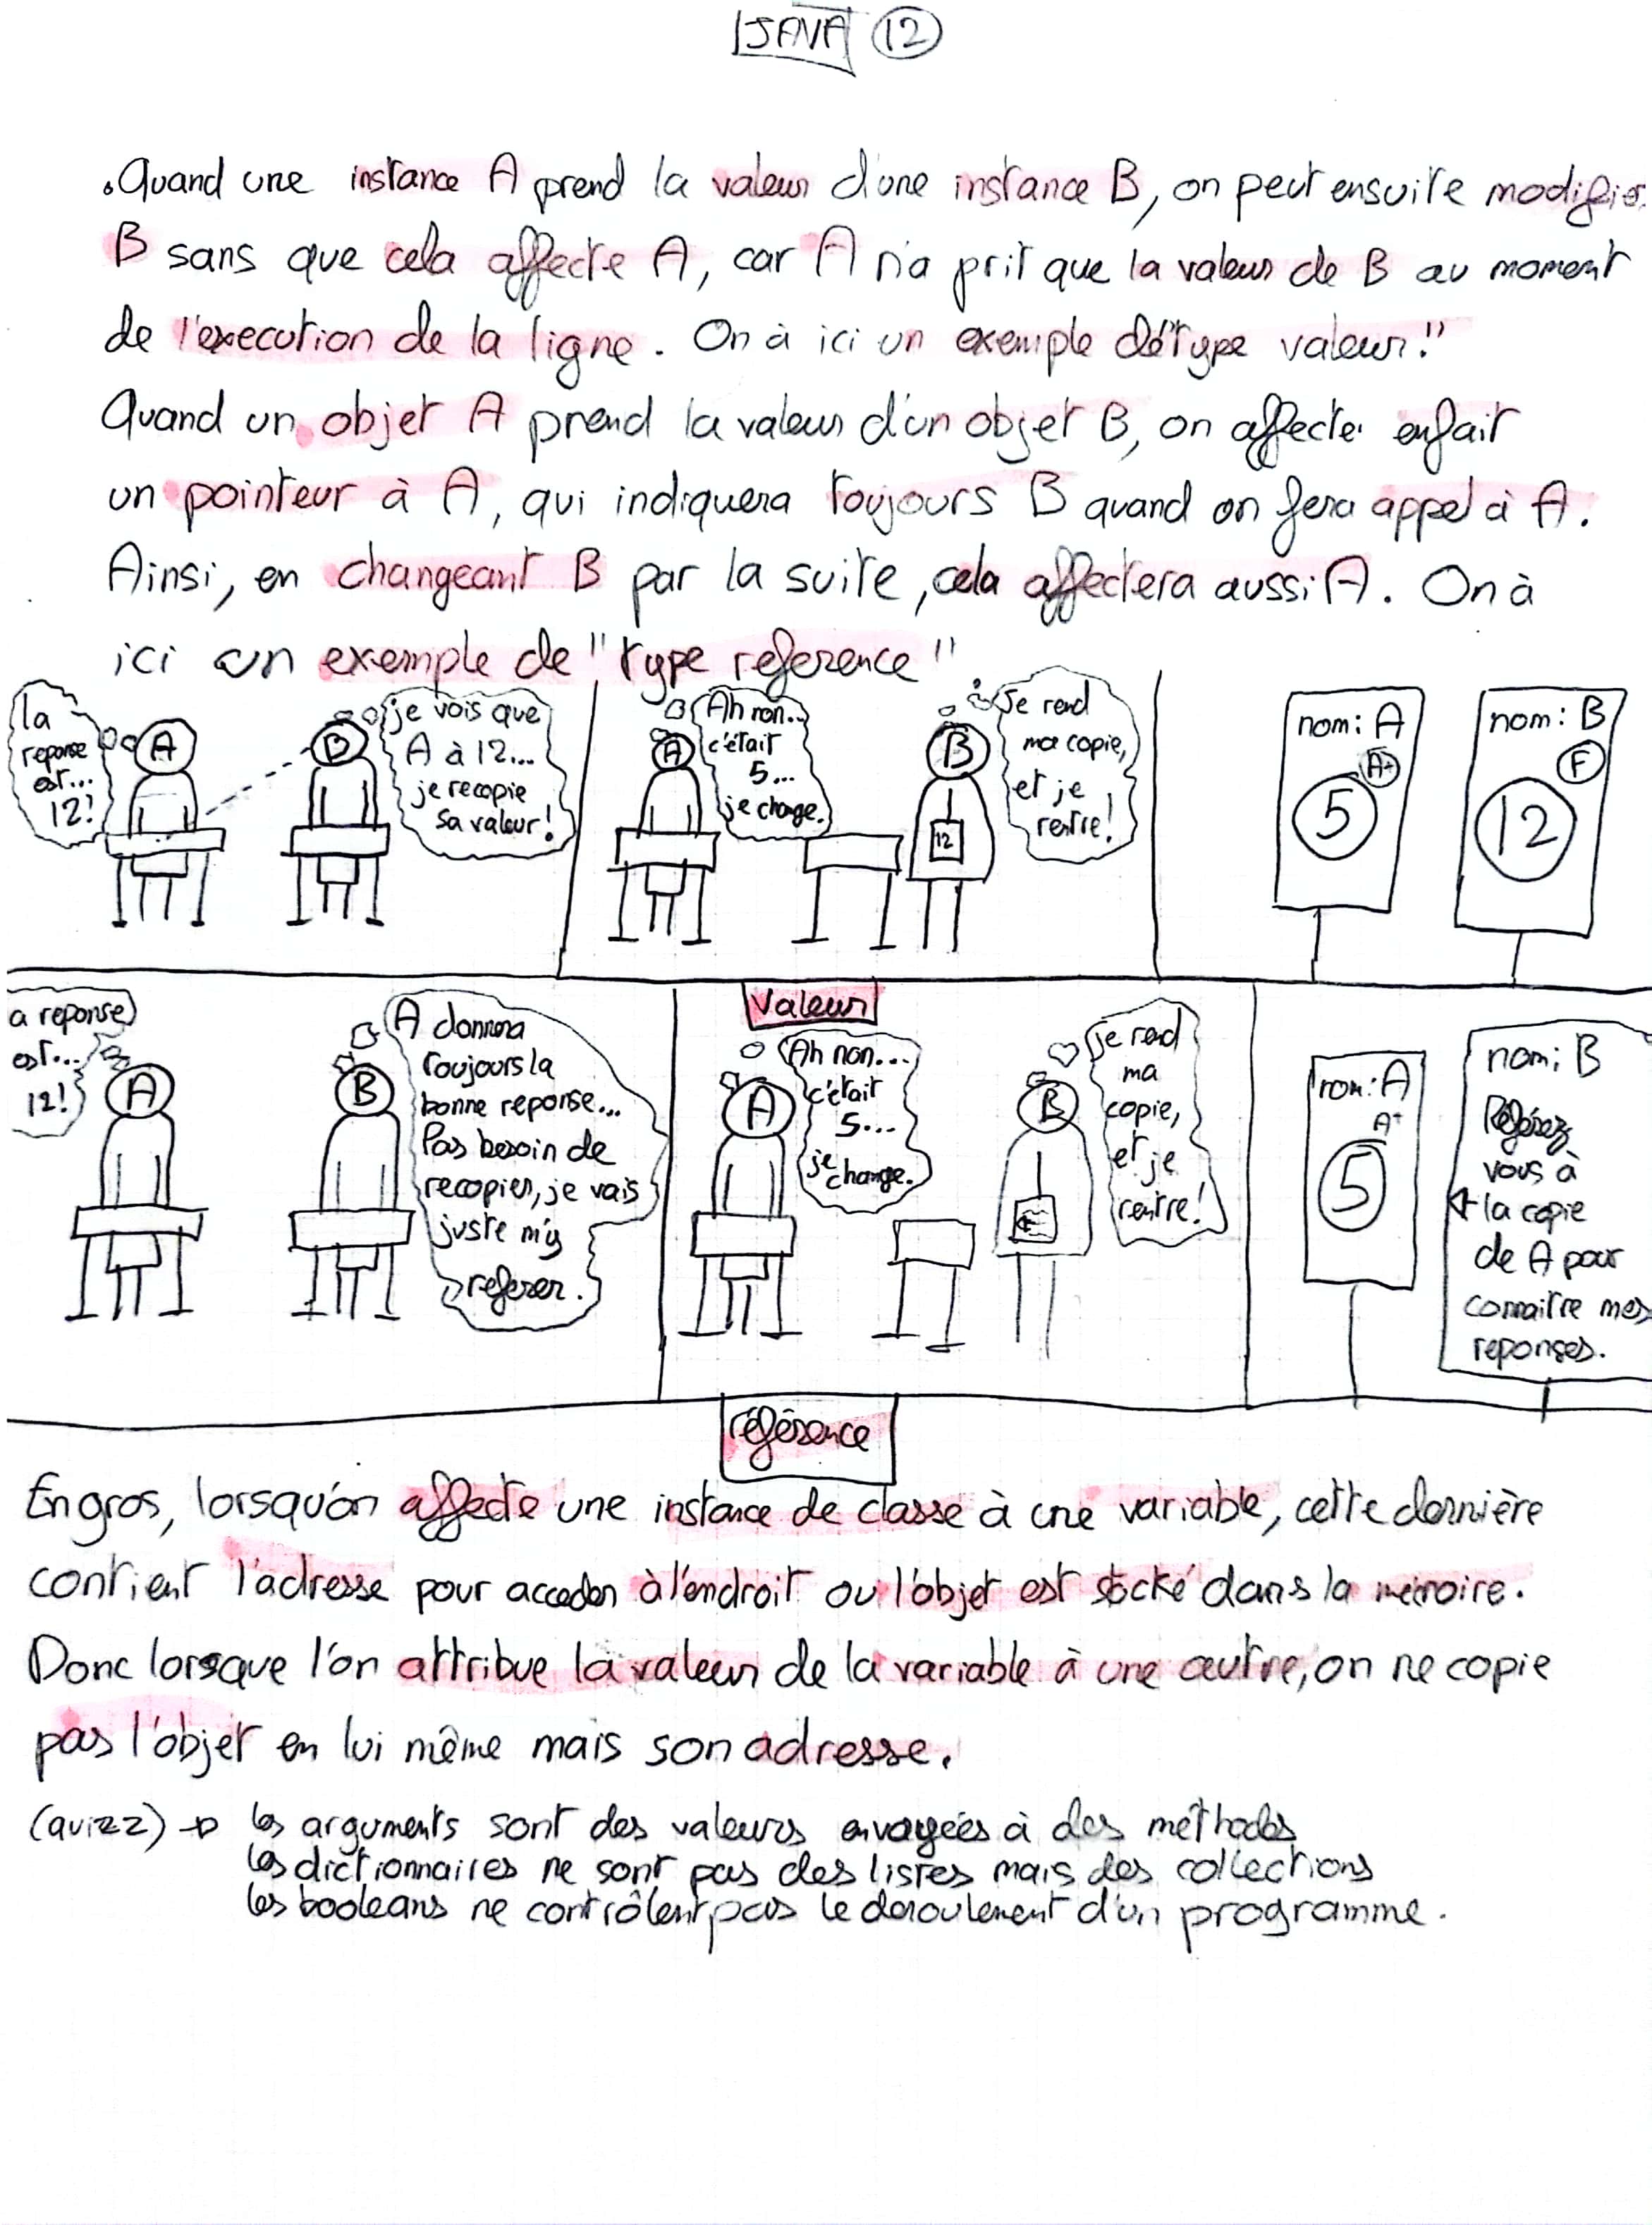 JAVA 12
. Quand une instance A prend la valeur d'une instance B, on peut ensuite modifier
B sans que cela affecte A, car A n'a prit que la valeur de B au moment
de l'execution de la ligne. On à ici un exemple de "type valeur."
Quand un objet A prend la valeur d'un objet B, on affecte enfait
un pointeur à A, qui indiquera toujours B quand on fera appel à A.
Ainsi, en changeant B par la suite, cela affectera aussi A. On à
ici un exemple de "type reference"
la
reponse
est...
12!
A
B
je vois que
A à 12...
je recopie
sa valeur!
A
Ah non...
c'était
5...
je change.
B
12
Je rend
ma copie,
et je
rentre!
nom: A
A+
5
nom: B
F
12
Valeur
a reponse
est...
12!
A
B
A donnera
toujours la
bonne reponse...
Pas besoin de
recopier, je vais
juste m'y
referer.
A
Ah non...
c'était
5...
je
change.
B
je rend
ma
copie,
et je
rentre!
nom: A
A+
5
nom: B
Référez
vous à
la copie
de A pour
connaitre mes
reponses.
référence
En gros, lorsqu'on affecte une instance de classe à une variable, cette dernière
contient l'adresse pour acceder à l'endroit ou l'objet est stocké dans la mémoire.
Donc lorsque l'on attribue la valeur de la variable à une autre, on ne copie
pas l'objet en lui même mais son adresse.
(quizz) → les arguments sont des valeurs envoyées à des méthodes
les dictionnaires ne sont pas des listes mais des collections
les booleans ne contrôlent pas le deroulement d'un programme.